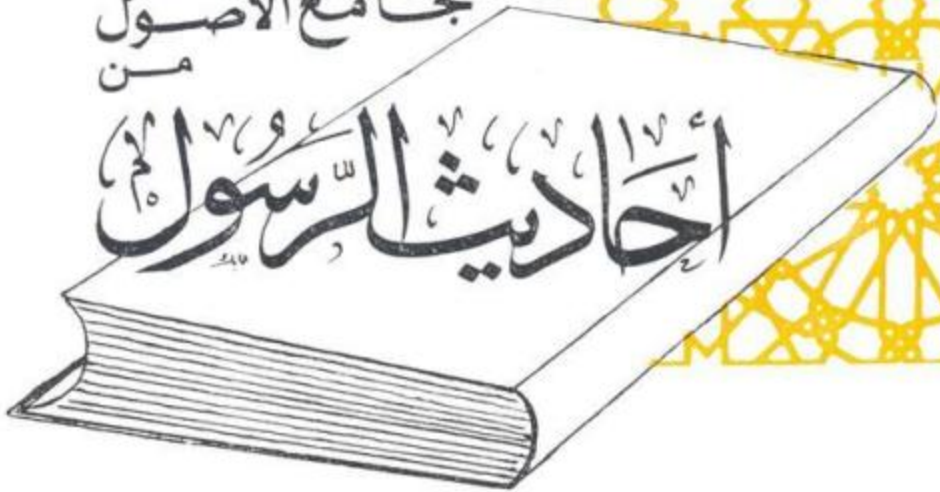 جامع الأصول
من
أحاديث الرسول